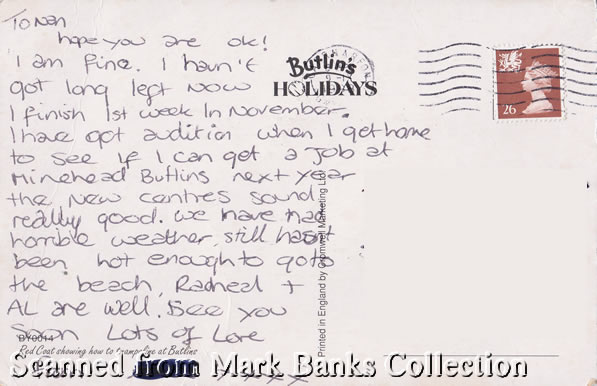 To Nan
hope you are ok!
I am fine. I havn't
got long left now
I finish 1st week In November.
I have got audition when I get home
to see if I can get a Job at
Minehead Butlins next year
the new centres sound
really good. we have had
horrible weather. still hasnt
been hot enough to go to
the beach, Racheal +
AL are well. See you
Soon Lots of Love
Butlin's
HOLIDAYS
26
Printed in England by Cromwell Marketing Ltd
BY0014
Red Coat showing how to trampoline at Butlins
Scanned from Mark Banks Collection